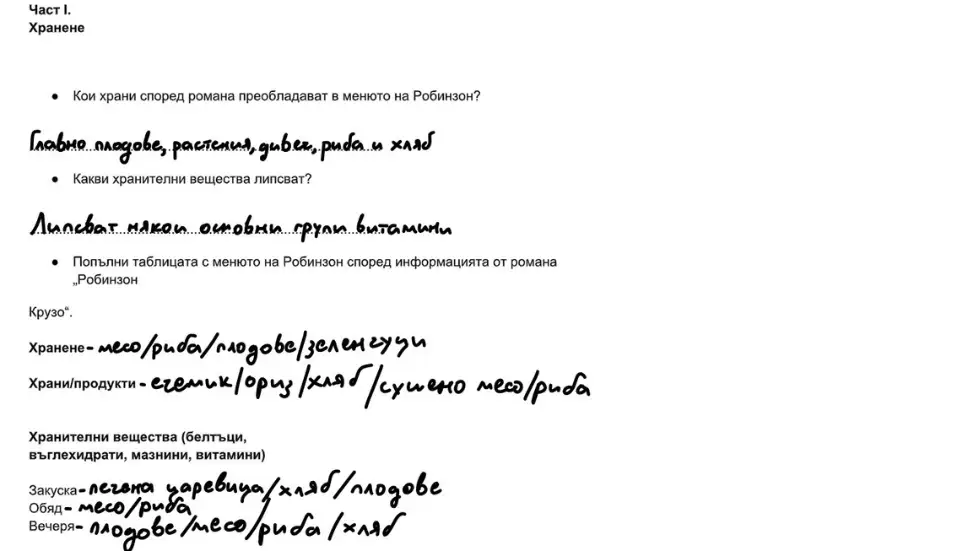 Част I.
Хранене
● Кои храни според романа преобладават в менюто на Робинзон?
Главно плодове, растения, дивеч, риба и хляб
● Какви хранителни вещества липсват?
Липсват някои основни групи витамини
● Попълни таблицата с менюто на Робинзон според информацията от романа
„Робинзон
Крузо“.
Хранене - месо/риба/плодове/зеленчуци
Храни/продукти - ечемик/ориз/хляб/сушено месо/риба
Хранителни вещества (белтъци,
въглехидрати, мазнини, витамини)
Закуска - печена царевица/хляб/плодове
Обяд - месо/риба
Вечеря - плодове/месо/риба/хляб